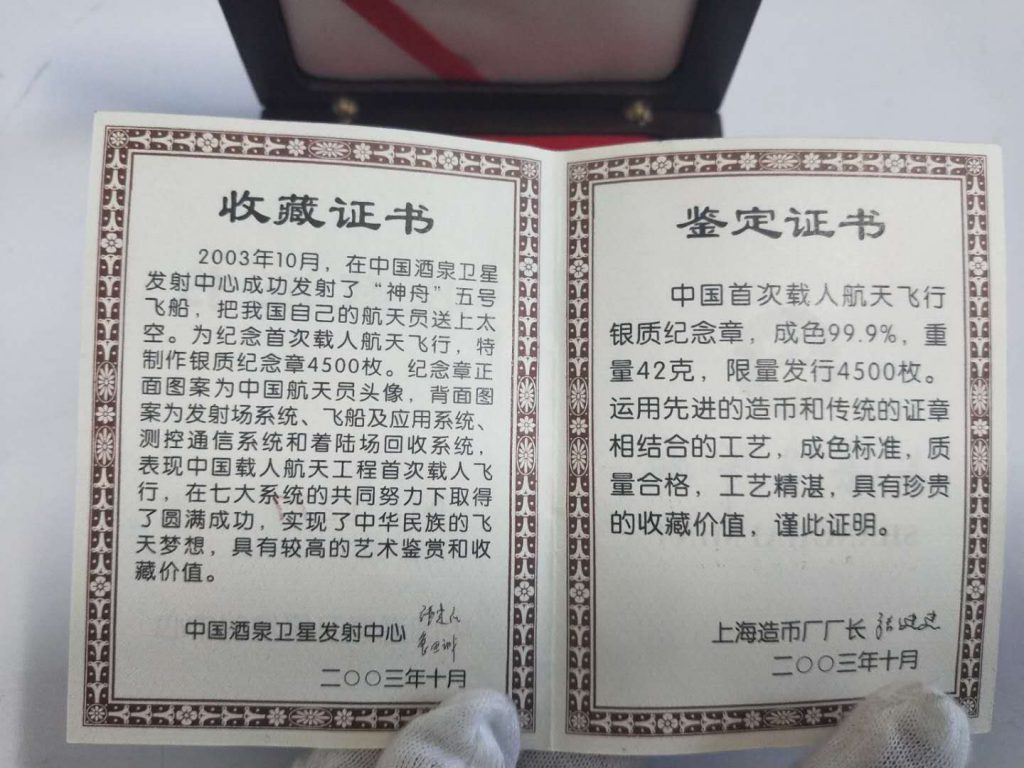 收藏证书
2003年10月，在中国酒泉卫星
发射中心成功发射了“神舟”五号
飞船，把我国自己的航天员送上太
空。为纪念首次载人航天飞行，特
制作银质纪念章4500枚。纪念章正
面图案为中国航天员头像，背面图
案为发射场系统、飞船及应用系统、
测控通信系统和着陆场回收系统，
表现中国载人航天工程首次载人飞
行，在七大系统的共同努力下取得
了圆满成功，实现了中华民族的飞
天梦想，具有较高的艺术鉴赏和收
藏价值。
中国酒泉卫星发射中心
二〇〇三年十月
鉴定证书
中国首次载人航天飞行
银质纪念章，成色99.9%，重
量42克，限量发行4500枚。
运用先进的造币和传统的证章
相结合的工艺，成色标准，质
量合格，工艺精湛，具有珍贵
的收藏价值，谨此证明。
上海造币厂厂长
二〇〇三年十月